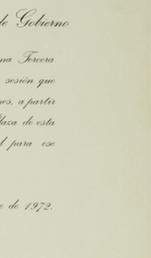 de Gobierno
na Tercera
sesión que
nes, a partir
laza de esta
l para ese
e de 1972.